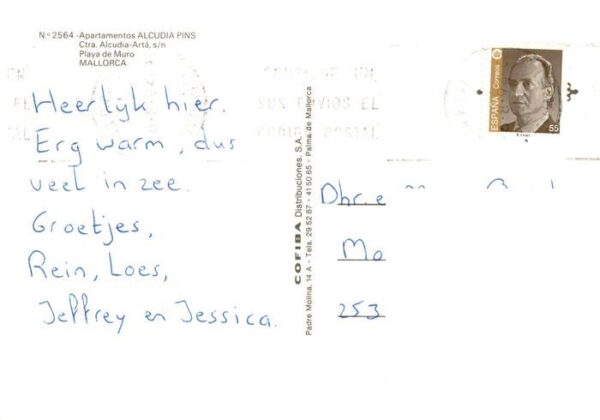 N.º 2564 -Apartamentos ALCUDIA PINS
Ctra. Alcudia-Artá, s/n
Playa de Muro
MALLORCA
SUS ENVIOS EL
CODIGO POSTAL
ESPAÑA
Correos
55
Heerlijk hier.
Erg warm, dus
veel in zee.
Groetjes,
Rein, Loes,
Jeffrey en Jessica.
COFIBA Distribuciones, S.A.
Padre Molina, 14 A - Tels. 29 52 87 - 41 50 65 - Palma de Mallorca
Dhr. e
Mo
253